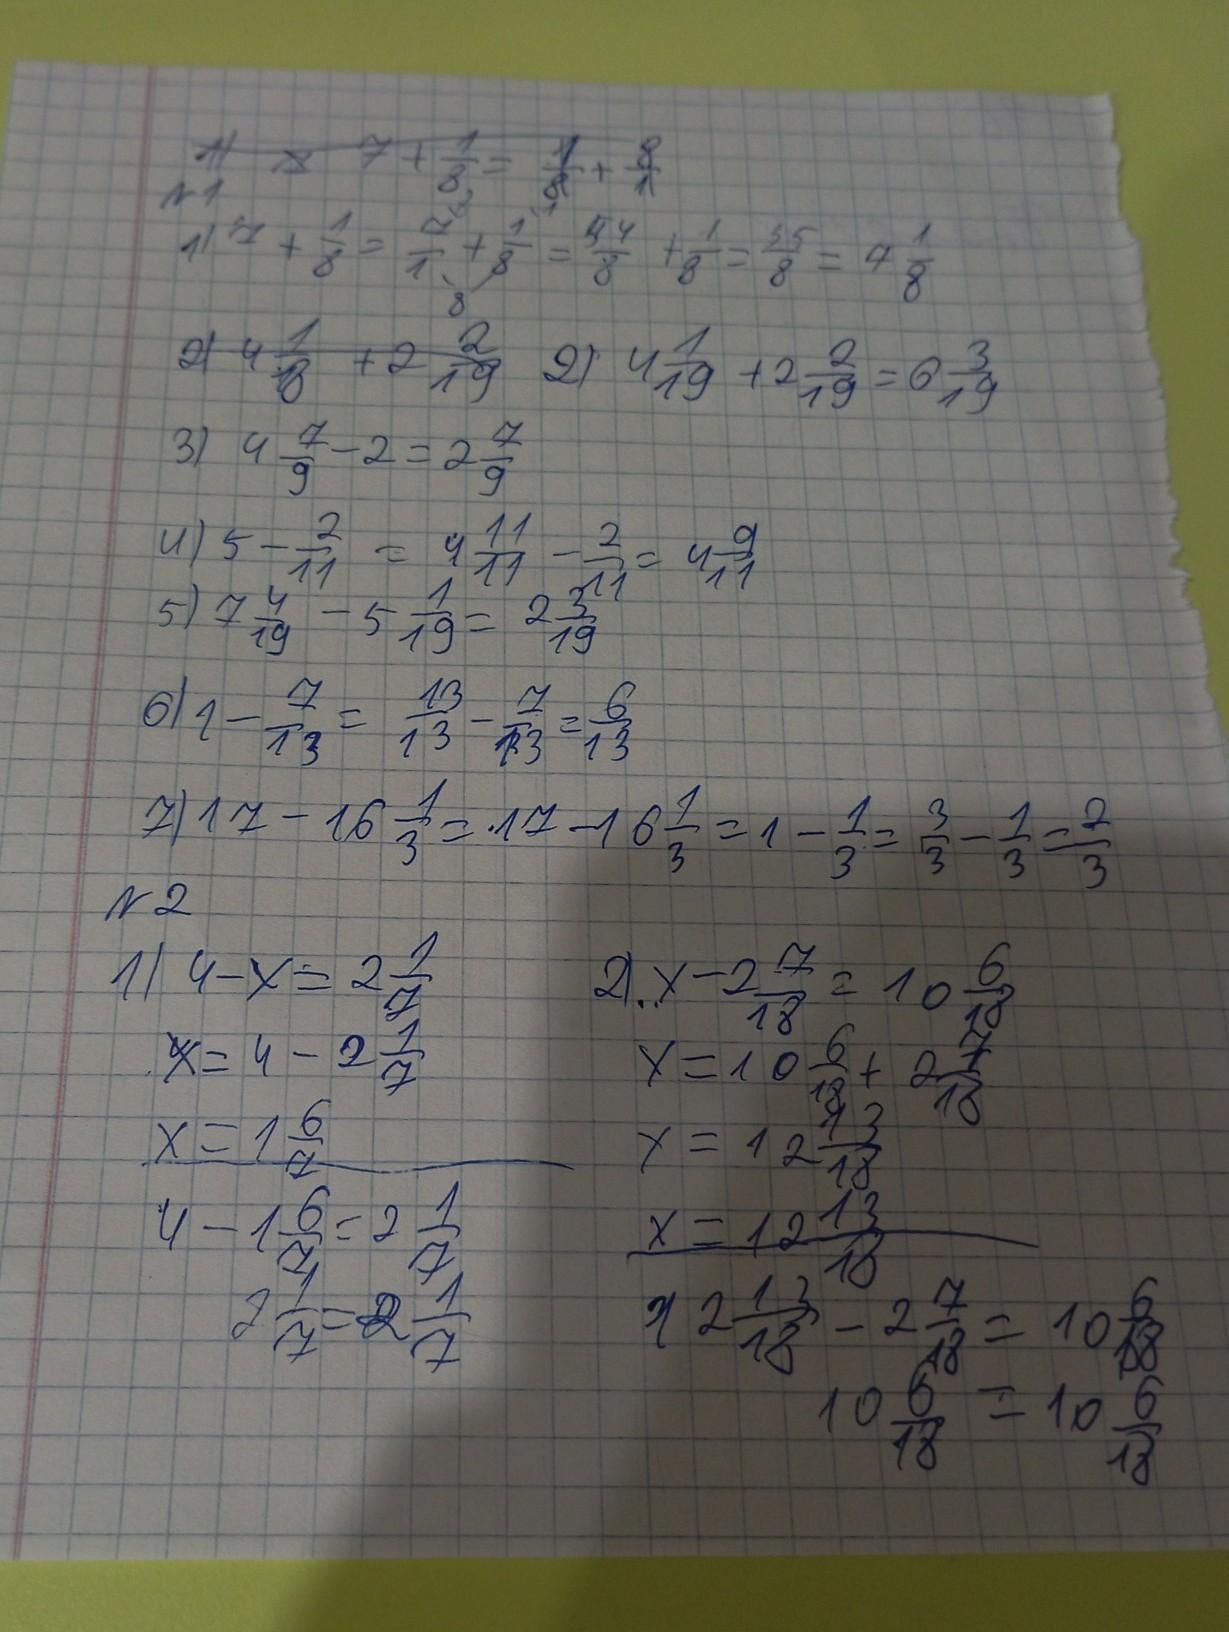 7 + 1/8 =
№1
1) 7 + 1/8 = 7/1 + 1/8 = 54/8 + 1/8 = 55/8 = 7 1/8
8
2) 4 1/8 + 2 2/19 2) 4 1/19 + 2 2/19 = 6 3/19
3) 4 7/9 - 2 = 2 7/9
4) 5 - 2/11 = 4 11/11 - 2/11 = 4 9/11
5) 7 4/19 - 5 1/19 = 2 3/19
6) 1 - 7/13 = 13/13 - 7/13 = 6/13
7) 17 - 16 1/3 = 17 - 16 1/3 = 1 - 1/3 = 3/3 - 1/3 = 2/3
№2
1) 4 - x = 2 1/7
x = 4 - 2 1/7
x = 1 6/7
4 - 1 6/7 = 2 1/7
2 1/7 = 2 1/7
2) x - 2 7/18 = 10 6/18
x = 10 6/18 + 2 7/18
x = 12 13/18
x = 12 13/18
12 13/18 - 2 7/18 = 10 6/18
10 6/18 = 10 6/18